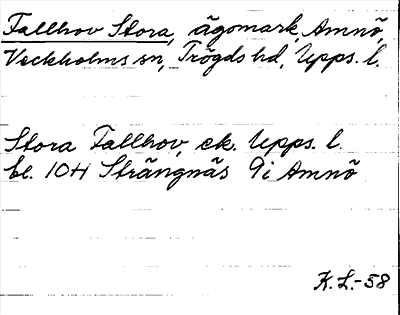 Fallhov Stora, ägomark, Amnö,
Veckholms sn, Trögds hd, Upps. l.
Stora Fallhov, ek. Upps. l.
bl. 104 Strängnäs 9i Amnö
K.L.-58